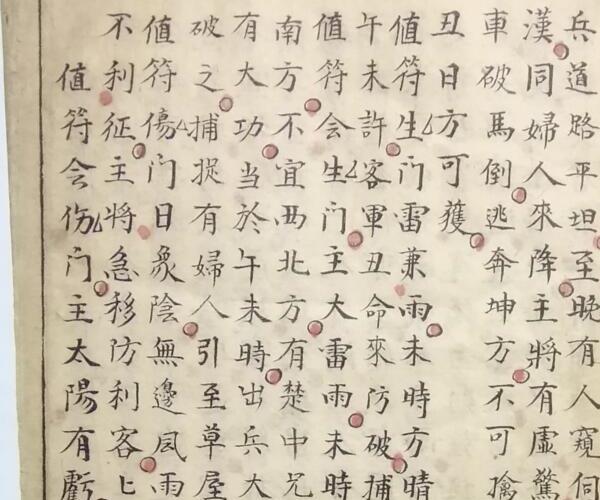 兵道路平坦至晚有人窺伺
漢同婦人來降主將有虛驚
車破馬倒逃奔坤方不可擒
丑日方可獲
值符生門雷兼雨未時方晴
午未許客軍丑命來防破捕
值符会生門主大雷雨未時
南方不宜西北方有楚中兄
有大功当於午未時出兵大
破之捕捉有婦人引至草屋
值符傷门日眾陰無邊風雨
不利征主將急移防利客
值符会伤门主太陽有虧